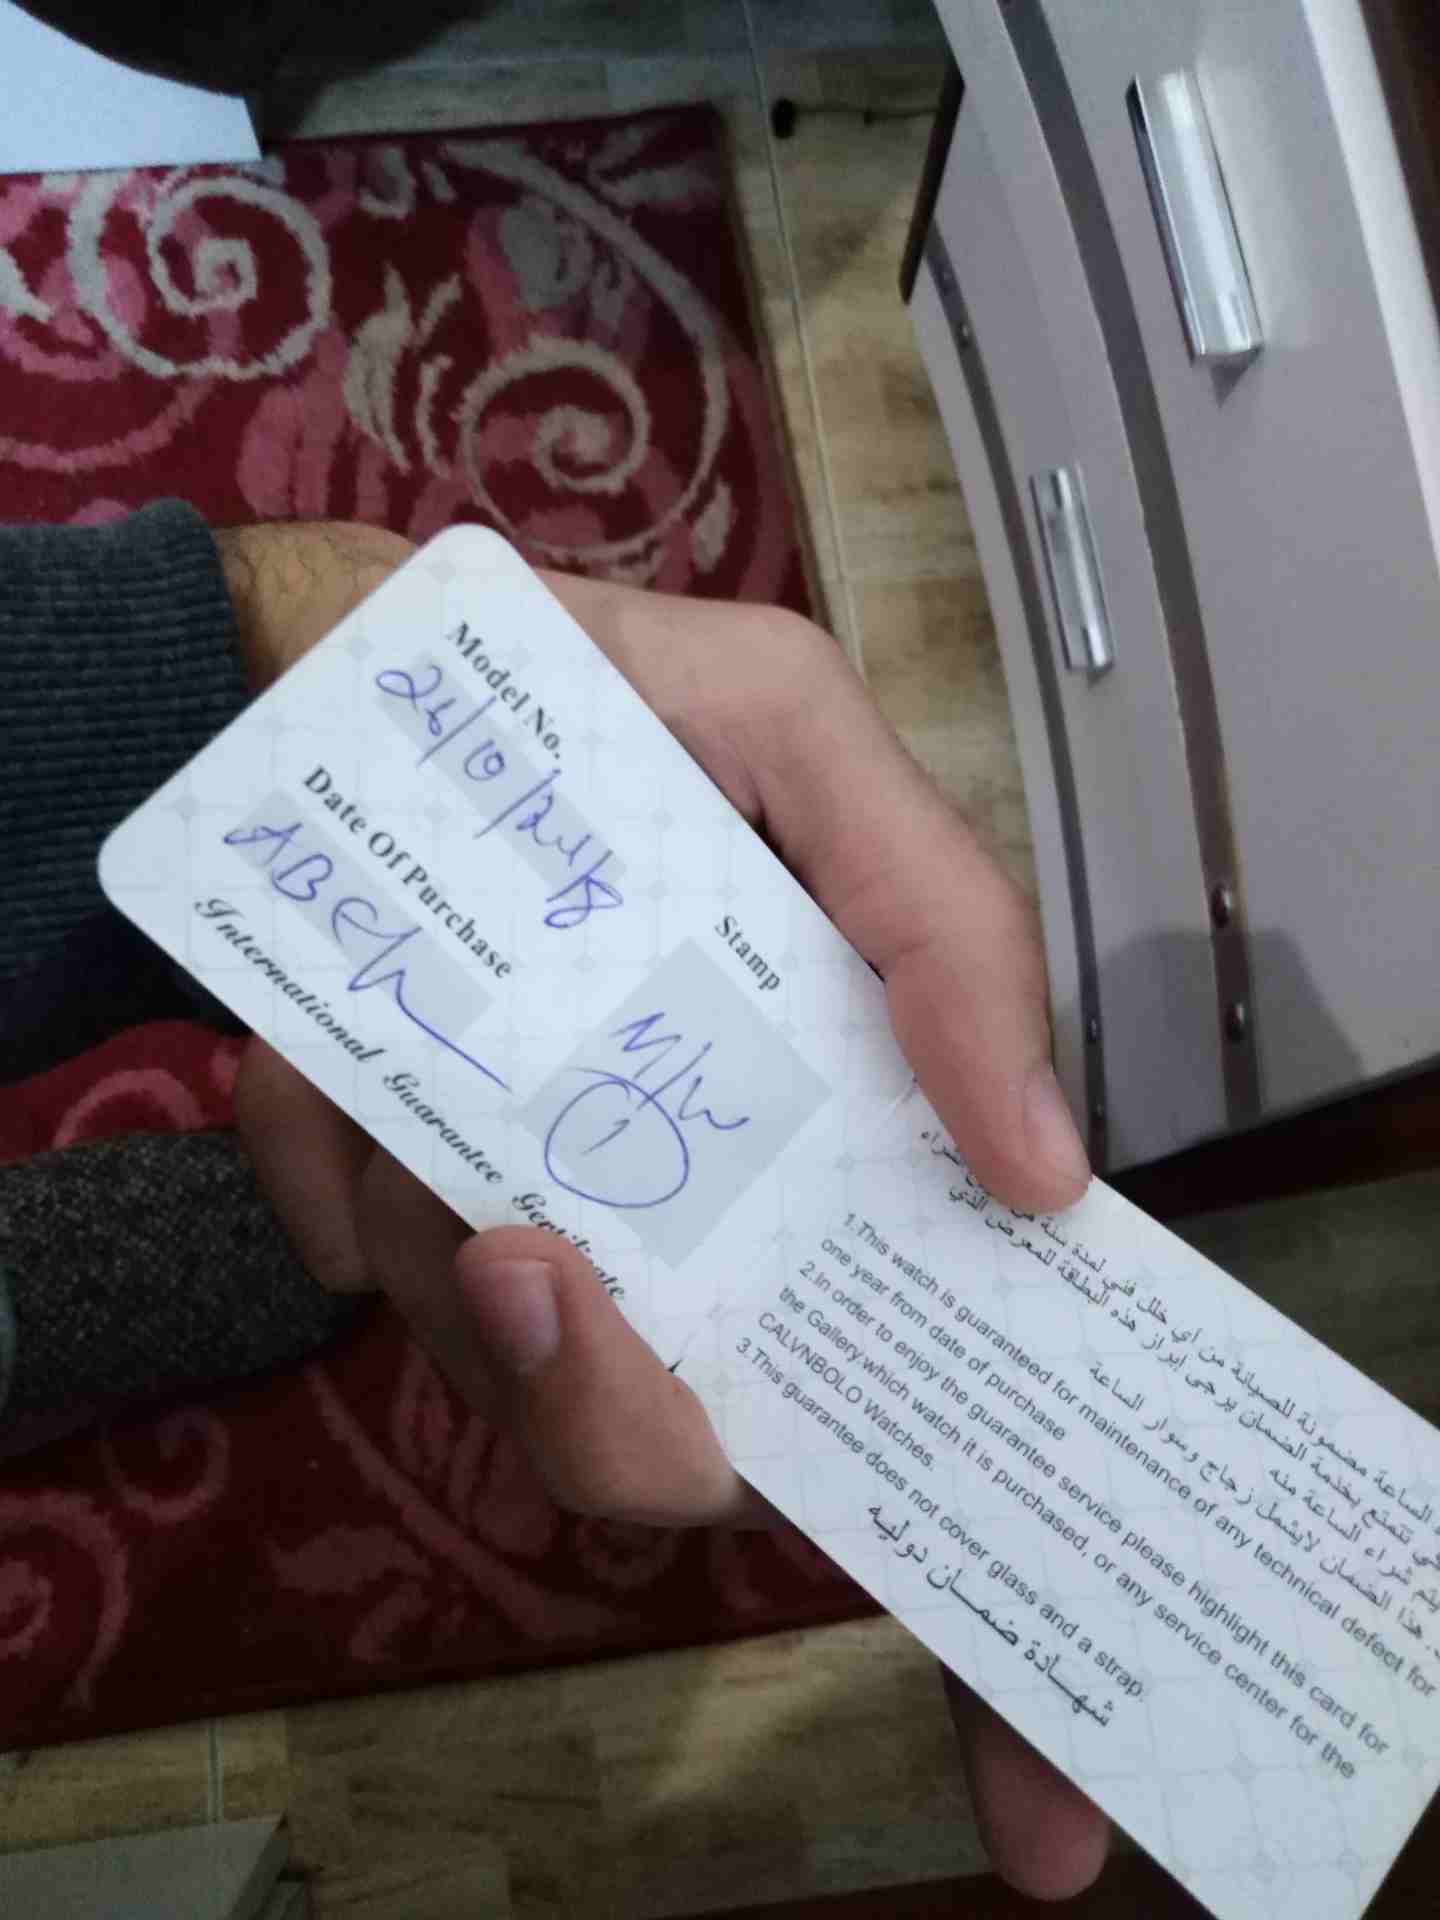 Model No.
26/10/
Date Of Purchase
Stamp
1
International Guarantee Certificate
شراء
الساعة مضمونة للصيانة من أي خلل فني لمدة سنة من
تتمتع بخدمة الضمان يرجى إبراز هذه البطاقة للمعرض الذي
يتم شراء الساعة منه
هذا الضمان لايشمل زجاج وسوار الساعة
1.This watch is guaranteed for maintenance of any technical defect for
one year from date of purchase
2.In order to enjoy the guarantee service please highlight this card for
the Gallery which watch it is purchased, or any service center for the
CALVNBOLO Watches.
3.This guarantee does not cover glass and a strap.
شهادة ضمان دوليه